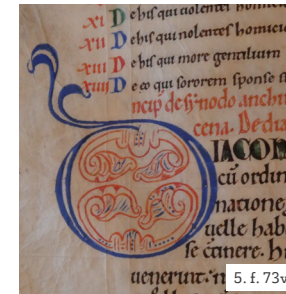 XI De his qui uiolenter homici
XII De his qui nolentes homici
XIII De his qui more gentilium
XIIII De eo qui sororem sponse s
ncip de sinodo anchi
cena. De dia
IACON
cū ordin
natione
uelle hab
se ctinere. h
uenerunt.
5. f. 73v